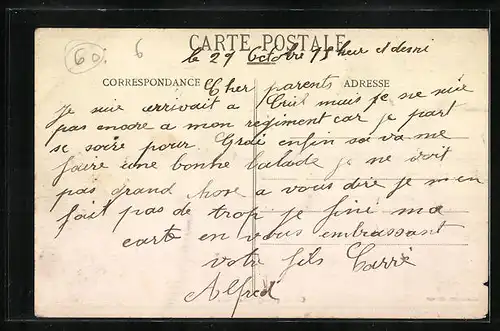 60. 6
CARTE POSTALE
le 29 Octobre 98 heur et demi
CORRESPONDANCE ADRESSE
Cher parents
Je suie errivait a Creil mais je ne suie
pas encore a mon regiment car je part
se soire pour Grai enfin sa va me
faire une bonne balade je ne voit
pas grand chose a vous dire je m en
fait pas de trop je fini ma
carte en vous embrassant
votre fils Carré
Alfred